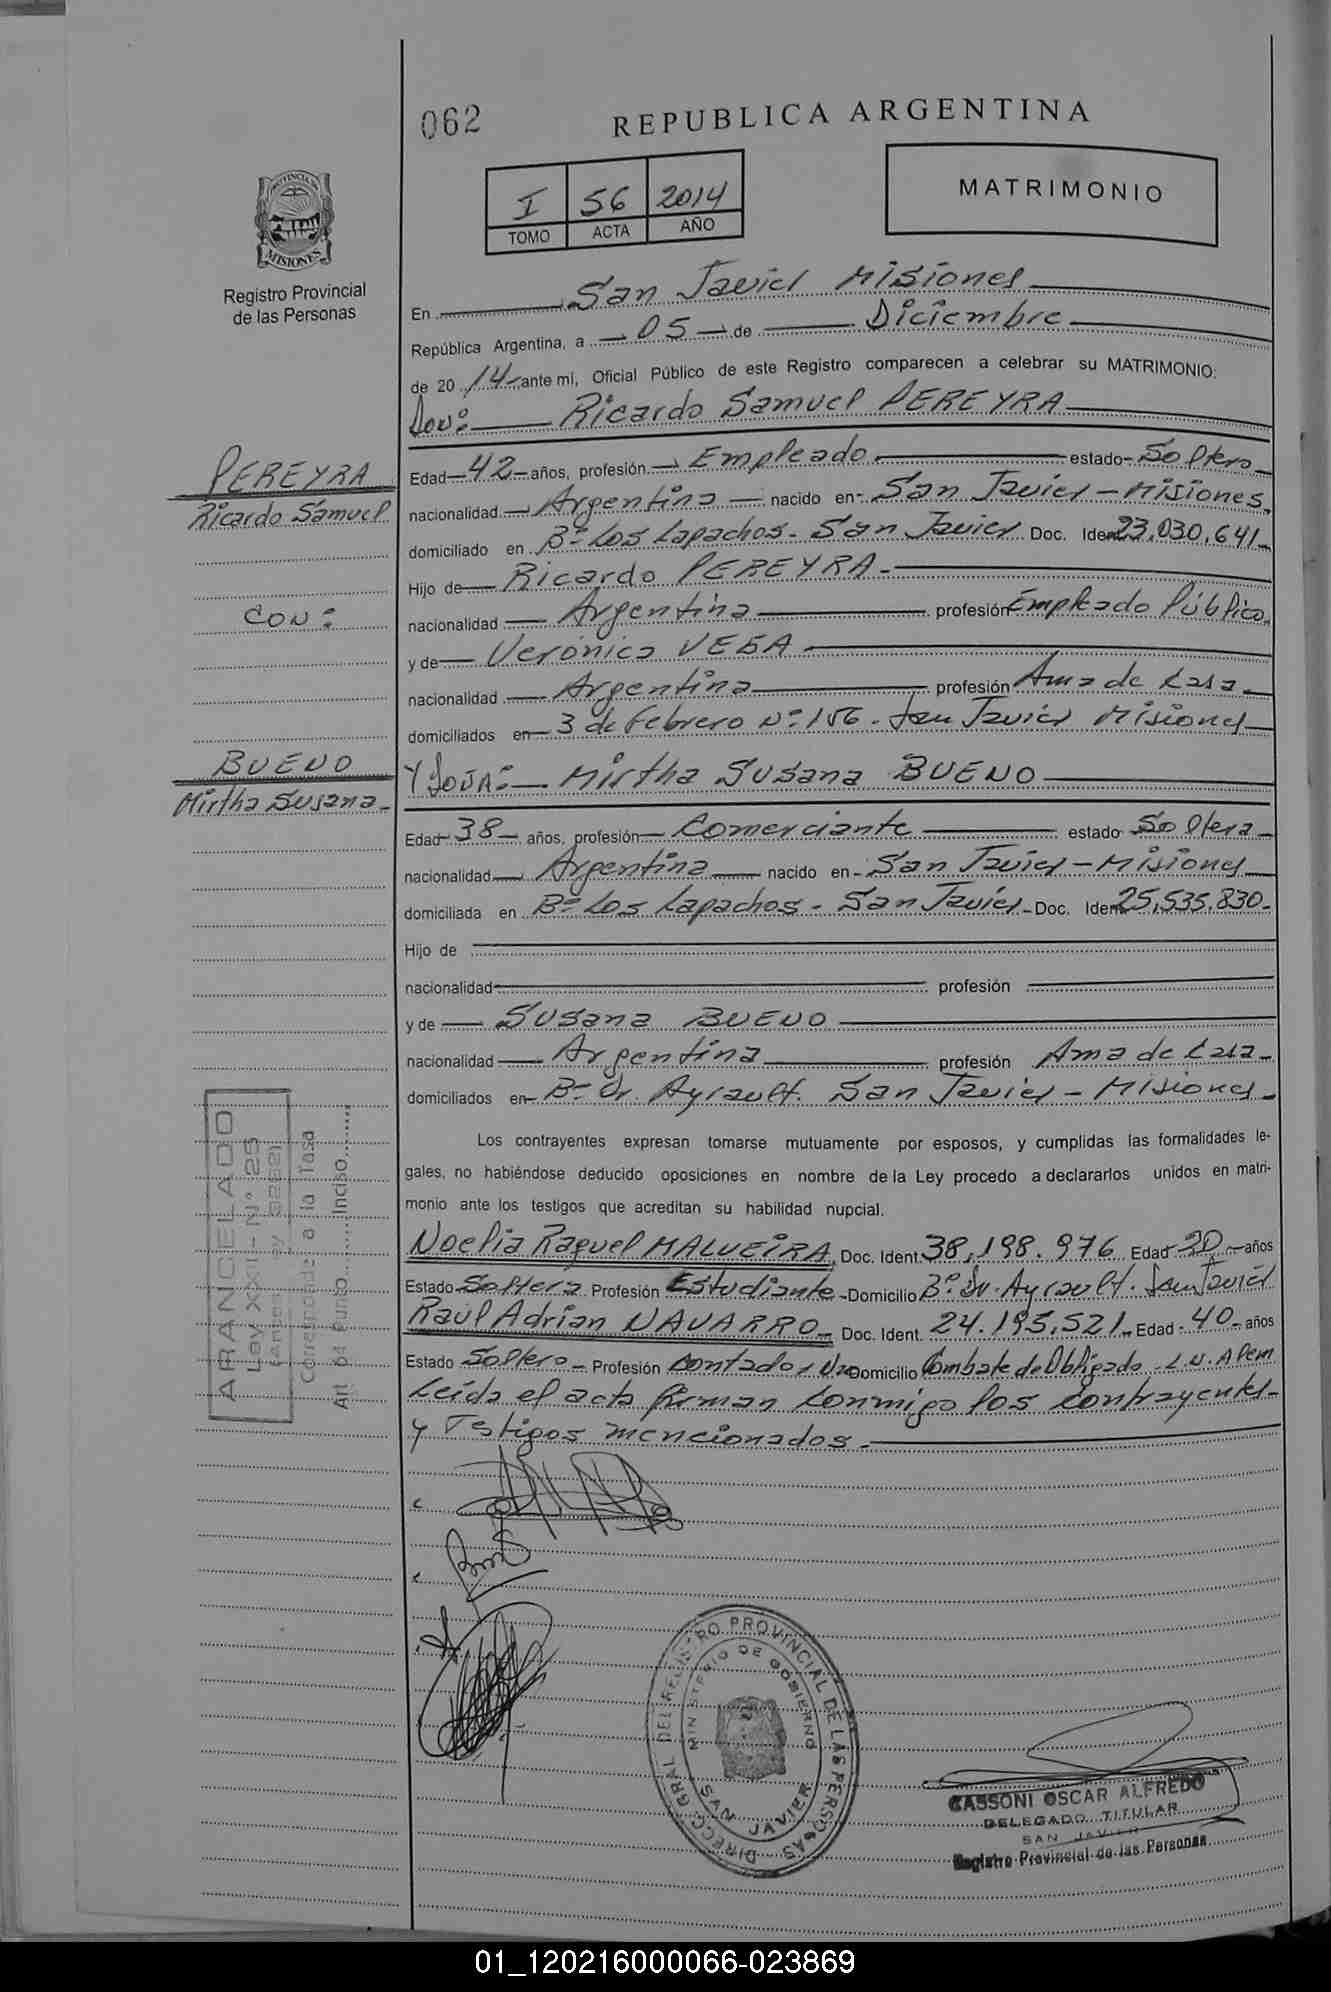 062
REPUBLICA ARGENTINA
MATRIMONIO
I 56 2014
TOMO ACTA AÑO
PROVINCIA DE
MISIONES
Registro Provincial
de las Personas
En San Javier Misiones
República Argentina, a 05 de Diciembre
de 20 14 ante mí, Oficial Público de este Registro comparecen a celebrar su MATRIMONIO:
Don: Ricardo Samuel PEREYRA
PEREYRA
Ricardo Samuel
CON:
BUENO
Mirtha Susana
Edad 42 años, profesión Empleado estado Soltero
nacionalidad Argentina nacido en San Javier - Misiones
domiciliado en Bº Los Lapachos - San Javier Doc. Ident 23.030.641
Hijo de Ricardo PEREYRA
nacionalidad Argentina profesión Empleado Público
y de Verónica VEGA
nacionalidad Argentina profesión Ama de Casa
domiciliados en 3 de Febrero Nº 156 - San Javier Misiones
Y DOÑA: Mirtha Susana BUENO
Edad 38 años, profesión Comerciante estado Soltera
nacionalidad Argentina nacido en San Javier - Misiones
domiciliada en Bº Los Lapachos - San Javier - Doc. Ident 25.535.830
Hijo de
nacionalidad profesión
y de Susana BUENO
nacionalidad Argentina profesión Ama de Casa
domiciliados en Bº Dr. Ayrault. San Javier - Misiones
Los contrayentes expresan tomarse mutuamente por esposos, y cumplidas las formalidades le-
gales, no habiéndose deducido oposiciones en nombre de la Ley procedo a declararlos unidos en matri-
monio ante los testigos que acreditan su habilidad nupcial.
Noelia Raquel MALVEIRA Doc. Ident. 38,198.976 Edad 20 años
Estado Soltera Profesión Estudiante Domicilio Bº Dr. Ayrault. San Javier
Raúl Adrian NAVARRO Doc. Ident. 24.195.521 Edad 40 años
Estado Soltero Profesión Contador Domicilio Combate de Obligado - L.N. Alem
Leída el acta firman conmigo los contrayentes
y Testigos mencionados.
ARANCELADO
Ley XXII - Nº 25
Corresponde a la Tasa
Art. 04 Punto Inciso
DIRECC. GRAL DEL REGISTRO PROVINCIAL DE LAS PERSONAS
MINISTERIO DE GOBIERNO
SAN JAVIER
CASSONI OSCAR ALFREDO
DELEGADO TITULAR
SAN JAVIER
Registro Provincial de las Personas
01_120216000066-023869